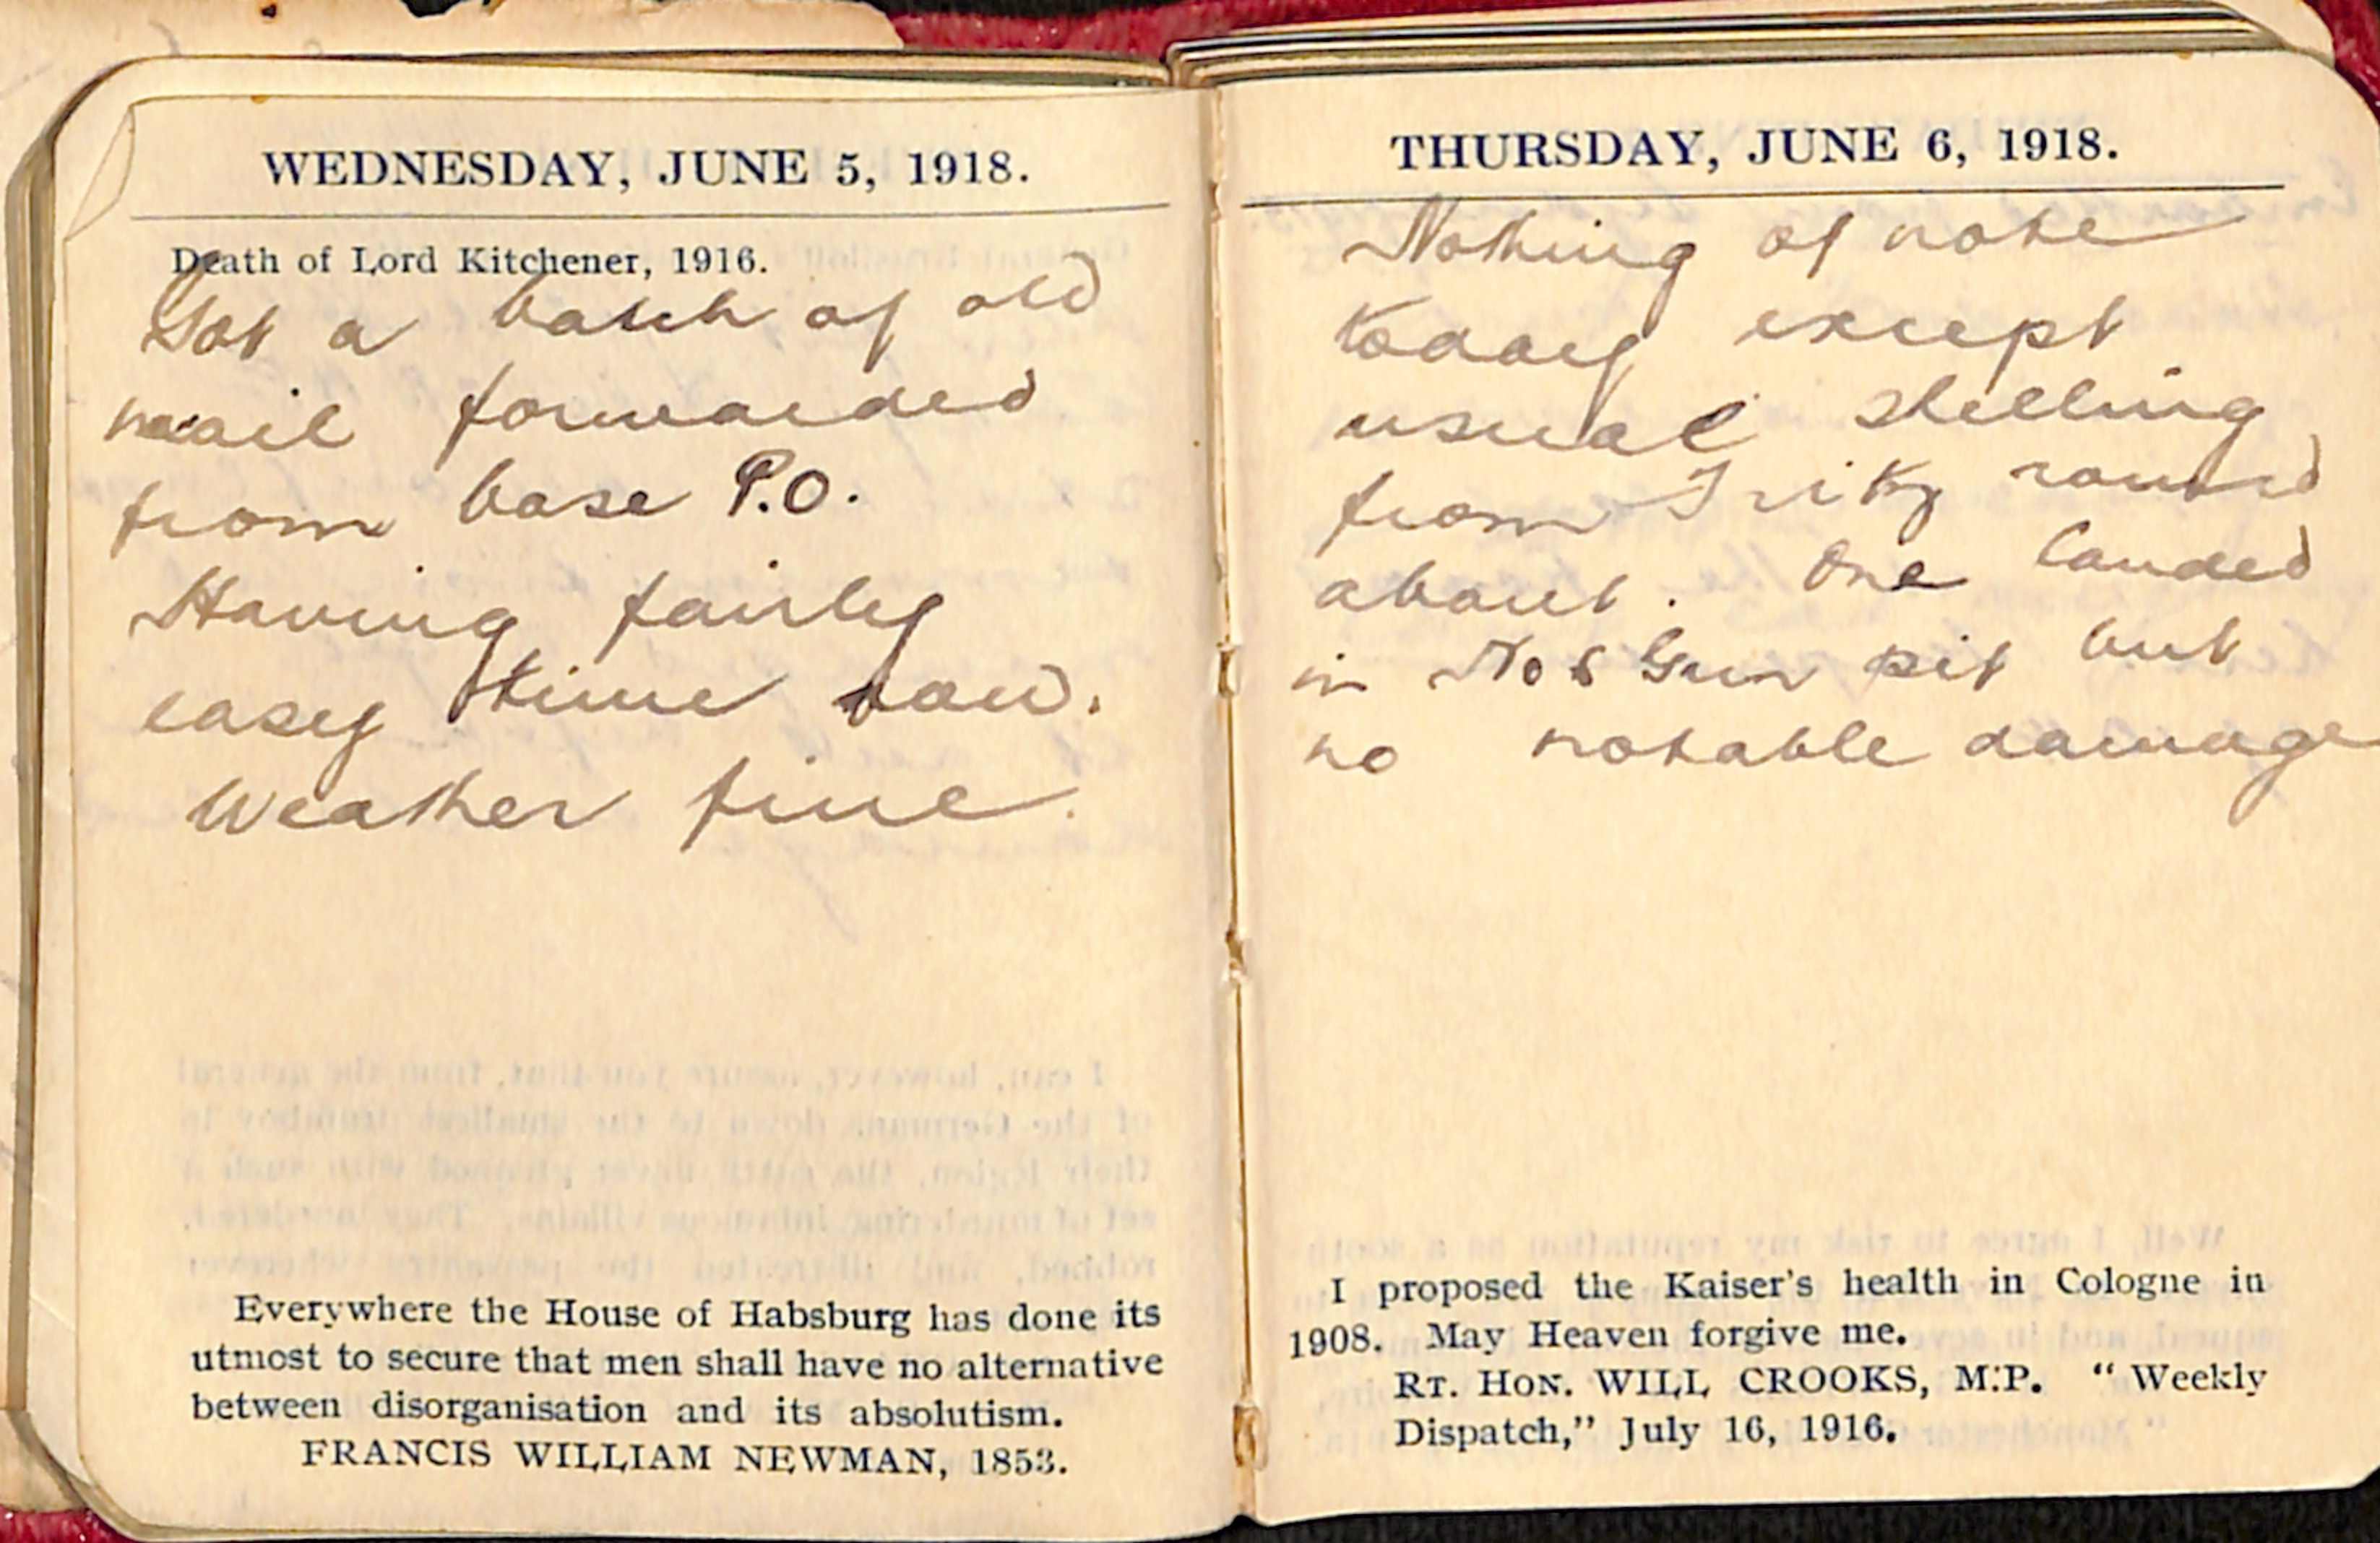 WEDNESDAY, JUNE 5, 1918.
Death of Lord Kitchener, 1916.
Got a batch of old
mail forwarded
from base P.O.
Having fairly
easy time now.
Weather fine.
Everywhere the House of Habsburg has done its
utmost to secure that men shall have no alternative
between disorganisation and its absolutism.
FRANCIS WILLIAM NEWMAN, 1853.
THURSDAY, JUNE 6, 1918.
Nothing of note
today except
usual shelling
from Fritz round
about. One landed
in No 6 Gun pit but
no notable damage
I proposed the Kaiser's health in Cologne in
1908. May Heaven forgive me.
RT. HON. WILL CROOKS, M.P. "Weekly
Dispatch," July 16, 1916.